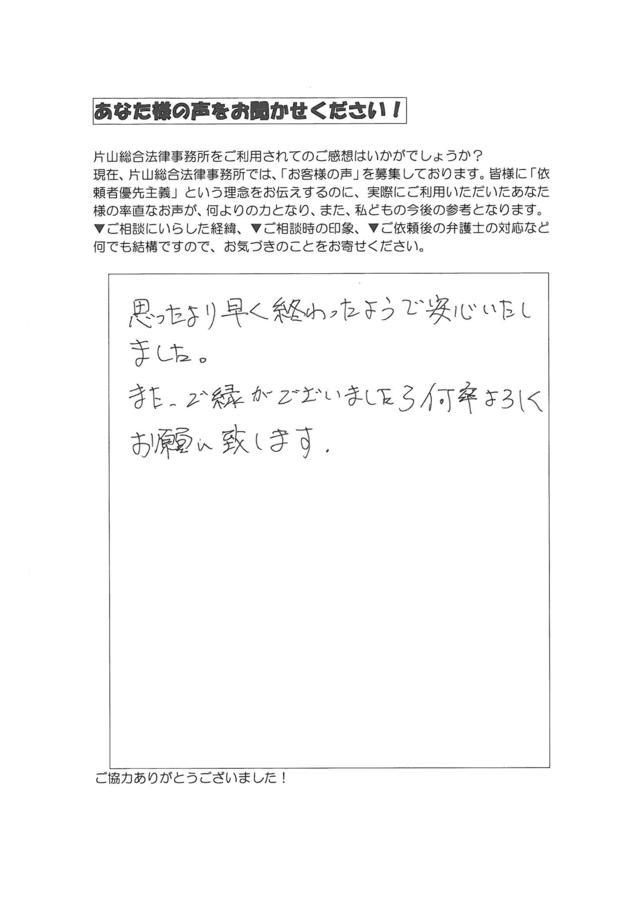 あなた様の声をお聞かせください！
片山総合法律事務所をご利用されてのご感想はいかがでしょうか？
現在、片山総合法律事務所では、「お客様の声」を募集しております。皆様に「依
頼者優先主義」という理念をお伝えするのに、実際にご利用いただいたあなた
様の率直なお声が、何よりの力となり、また、私どもの今後の参考となります。
▼ご相談にいらした経緯、▼ご相談時の印象、▼ご依頼後の弁護士の対応など
何でも結構ですので、お気づきのことをお寄せください。
思ったより早く終わったようで安心いたし
ました。
また、ご縁がございましたら何卒よろしく
お願い致します.
ご協力ありがとうございました！